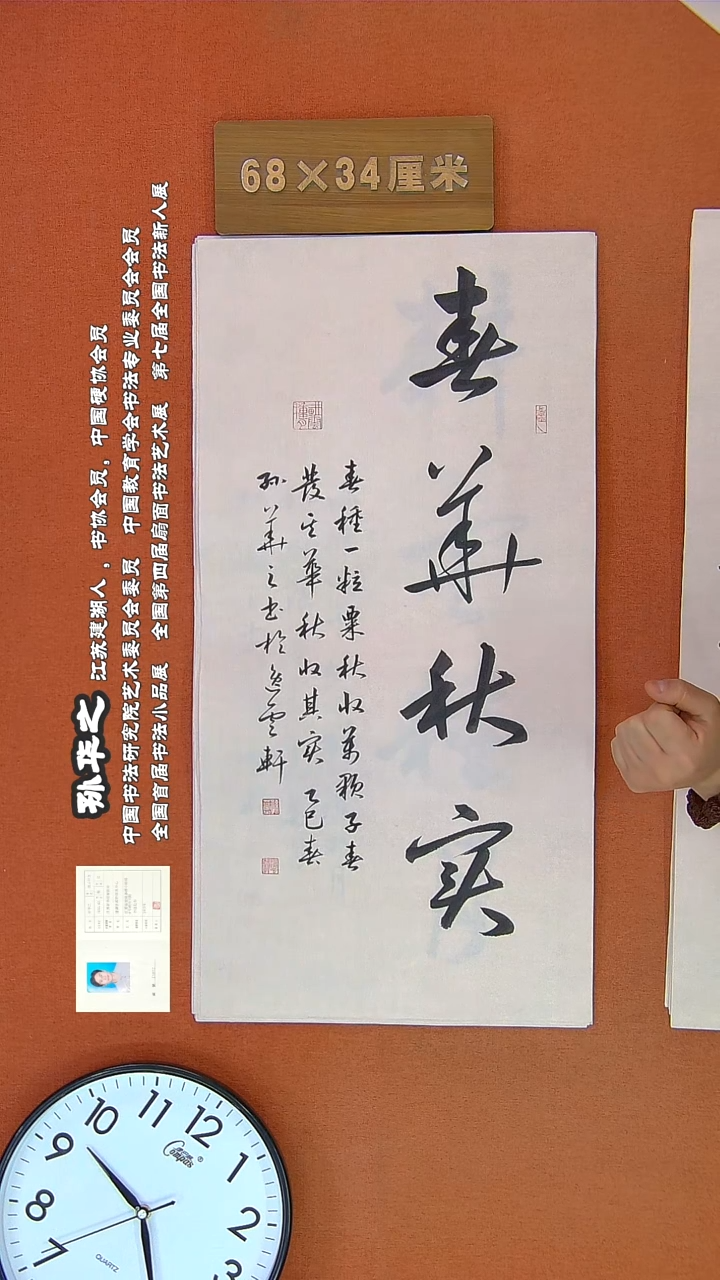 68×34厘米
春華秋实
春種一粒粟秋收萬颗子春
發其華秋收其实乙巳春
孙華之书於逸雲軒
孙华之
江苏建湖人，书协会员，中国硬协会员
中国书法研究院艺术委员会委员 中国教育学会书法专业委员会会员
全国首届书法小品展 全国第四届扇面书法艺术展 第七届全国书法新人展
9
10
11
12
1
2
3
8
7
Compas
QUARTZ